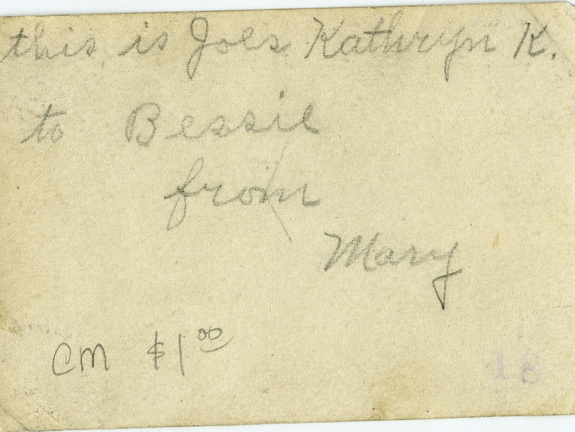 this is Joes Kathryn K.
to Bessie
from
Mary
CM $1.00
18